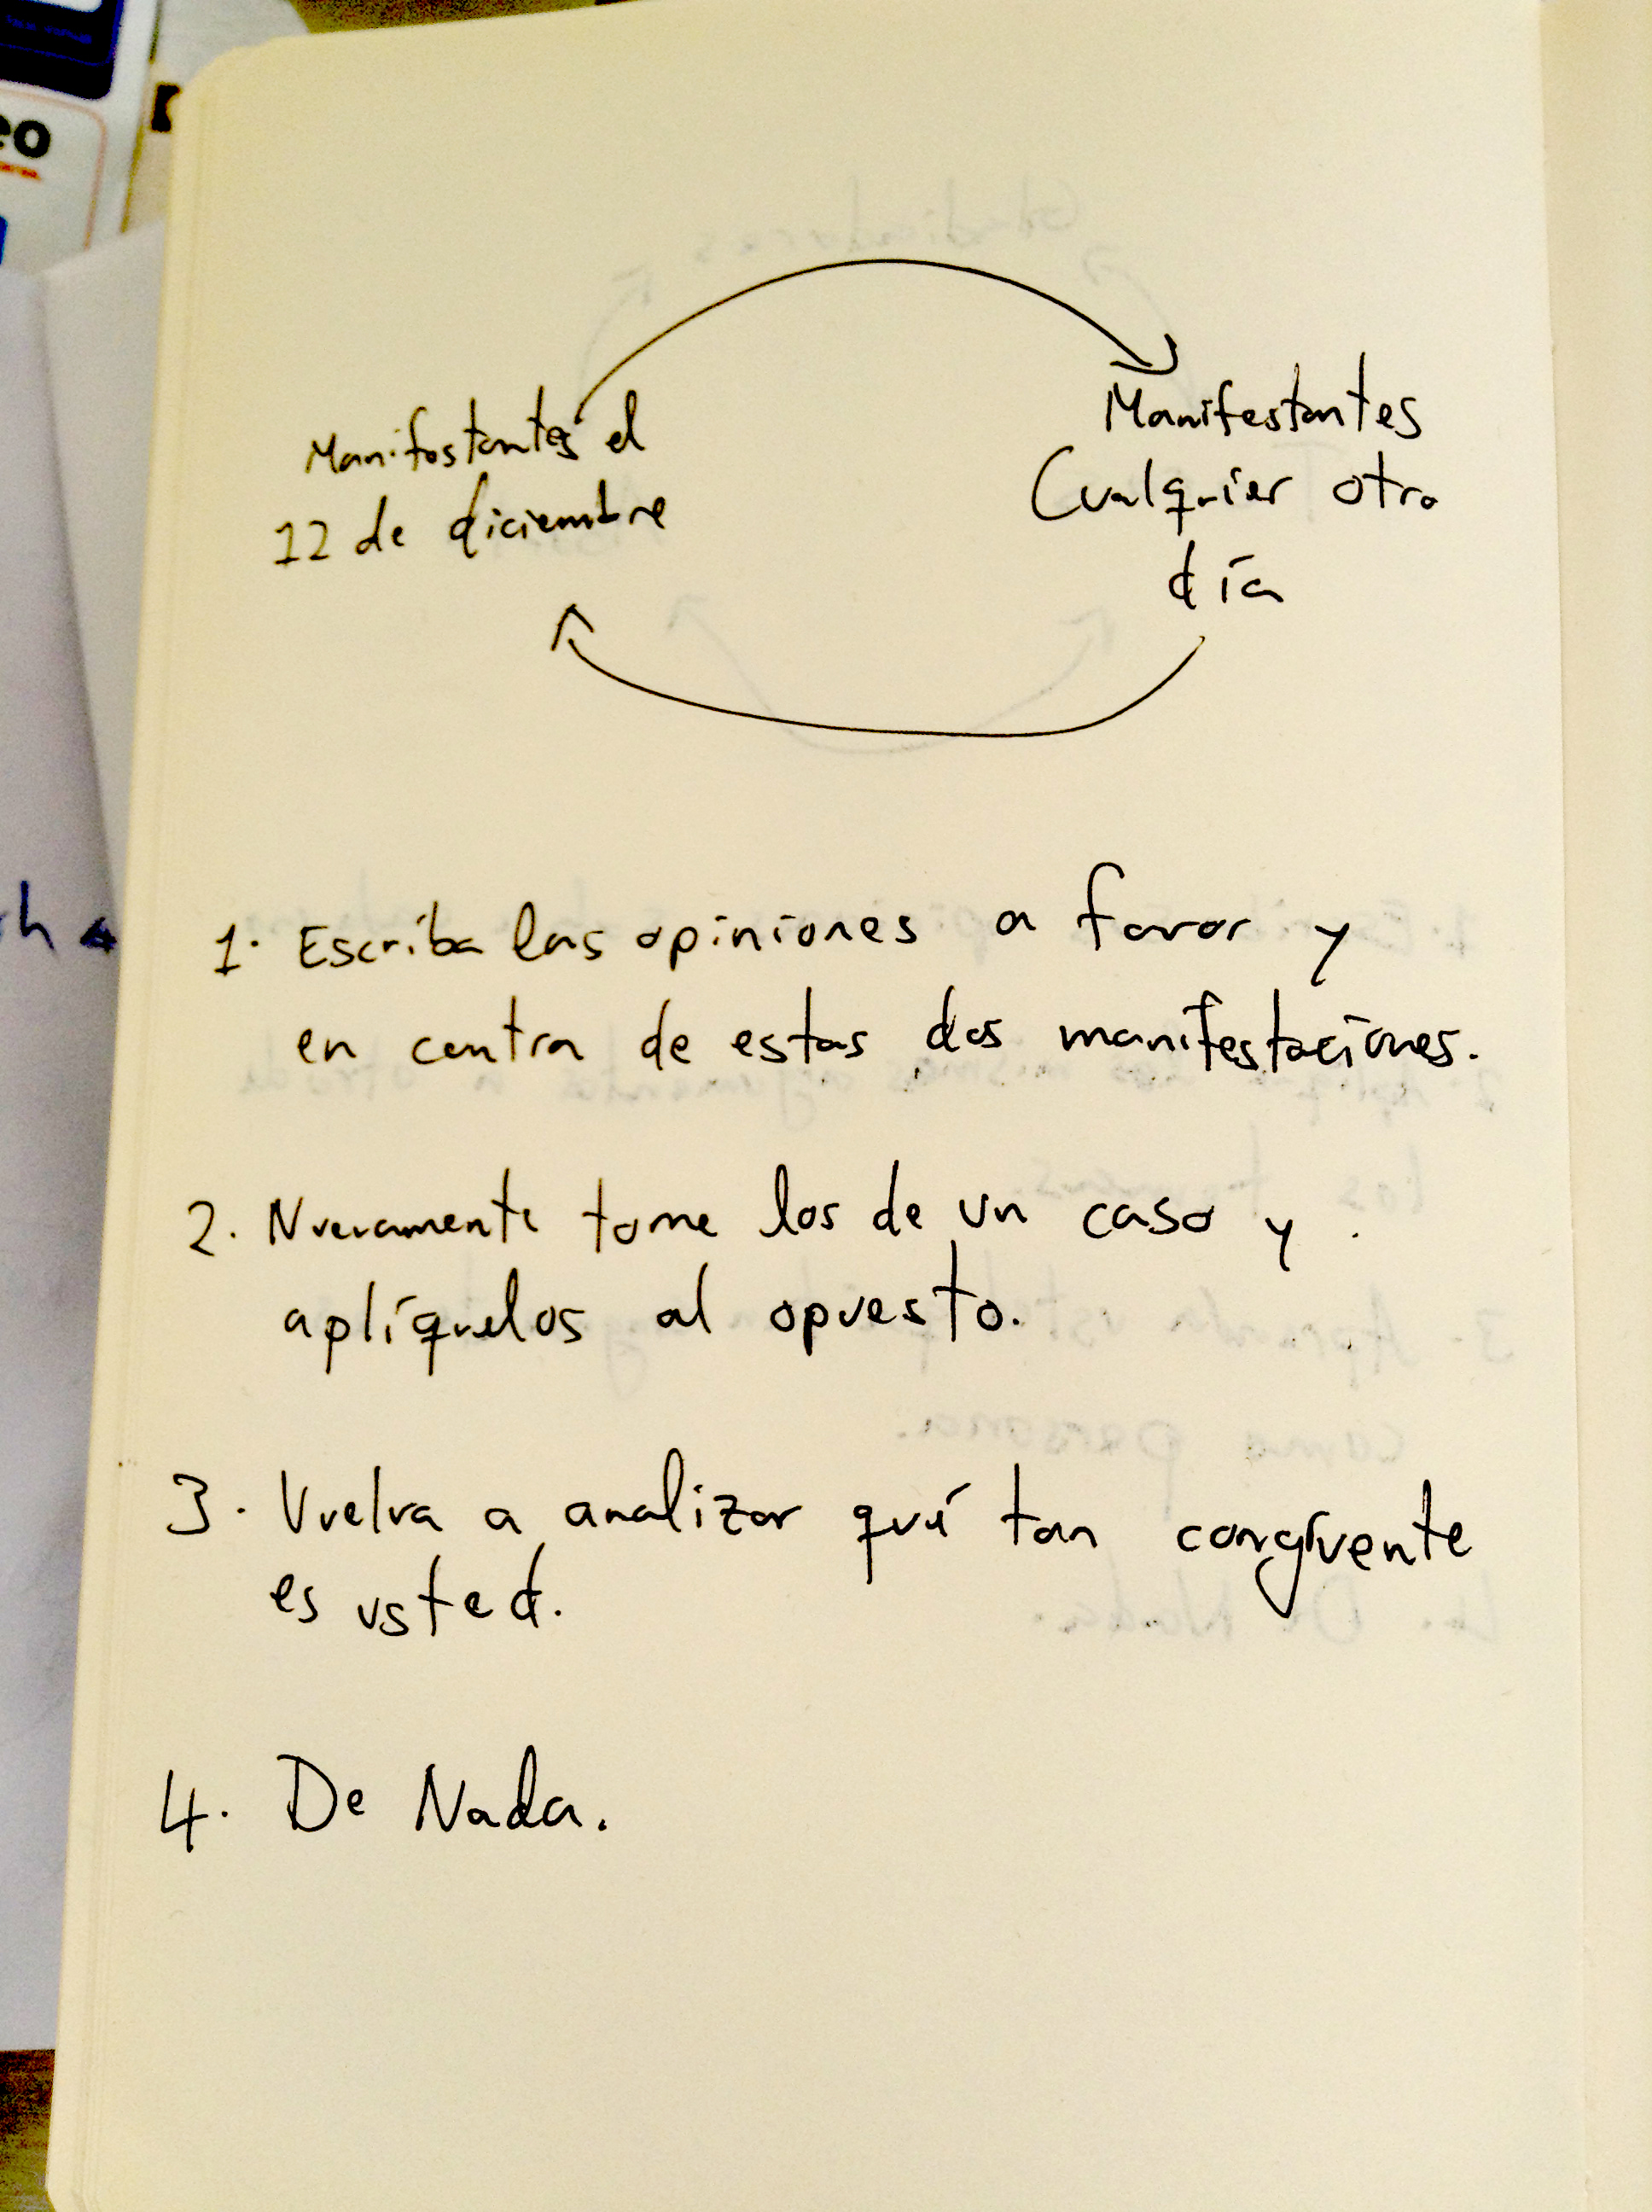 eo
Manifestantes el
12 de diciembre
Manifestantes
Cualquier otro
día
1. Escriba las opiniones a favor y
en contra de estas dos manifestaciones.
2. Nuevamente tome los de un caso y
aplíquelos al opuesto.
3. Vuelva a analizar qué tan congruente
es usted.
4. De Nada.